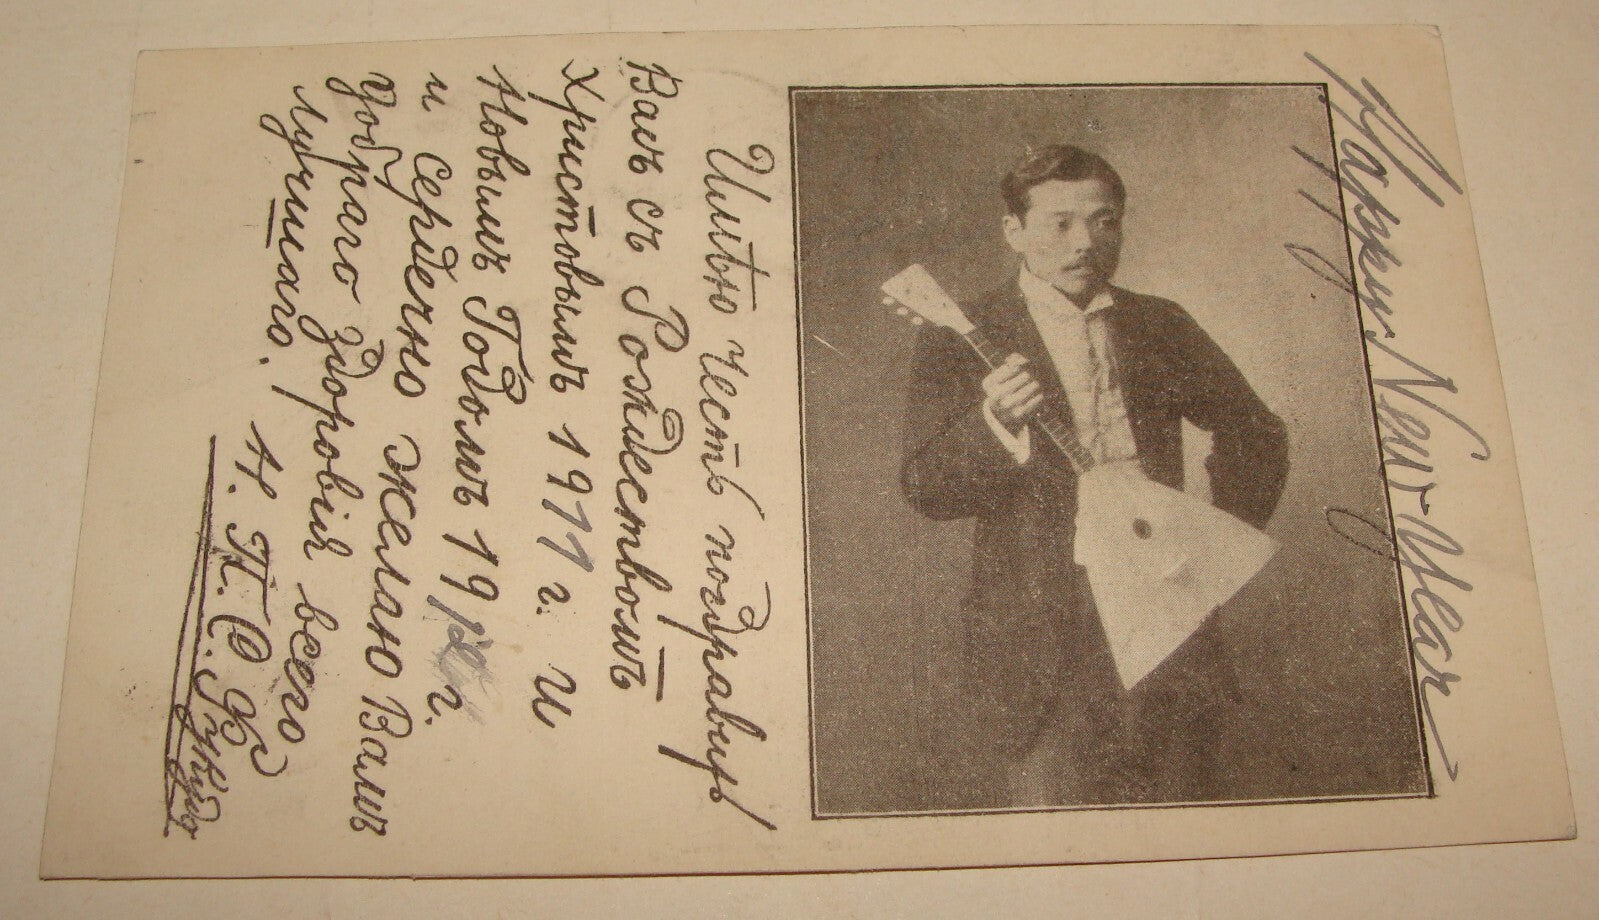 Happy New Year
Имѣю честь поздравить
Васъ съ Рождествомъ
Христовымъ 1911 г. и
Новымъ Годомъ 1912 г.
и сердечно желаю Вамъ
добраго здоровія всего
лучшаго.
Н. П. С.